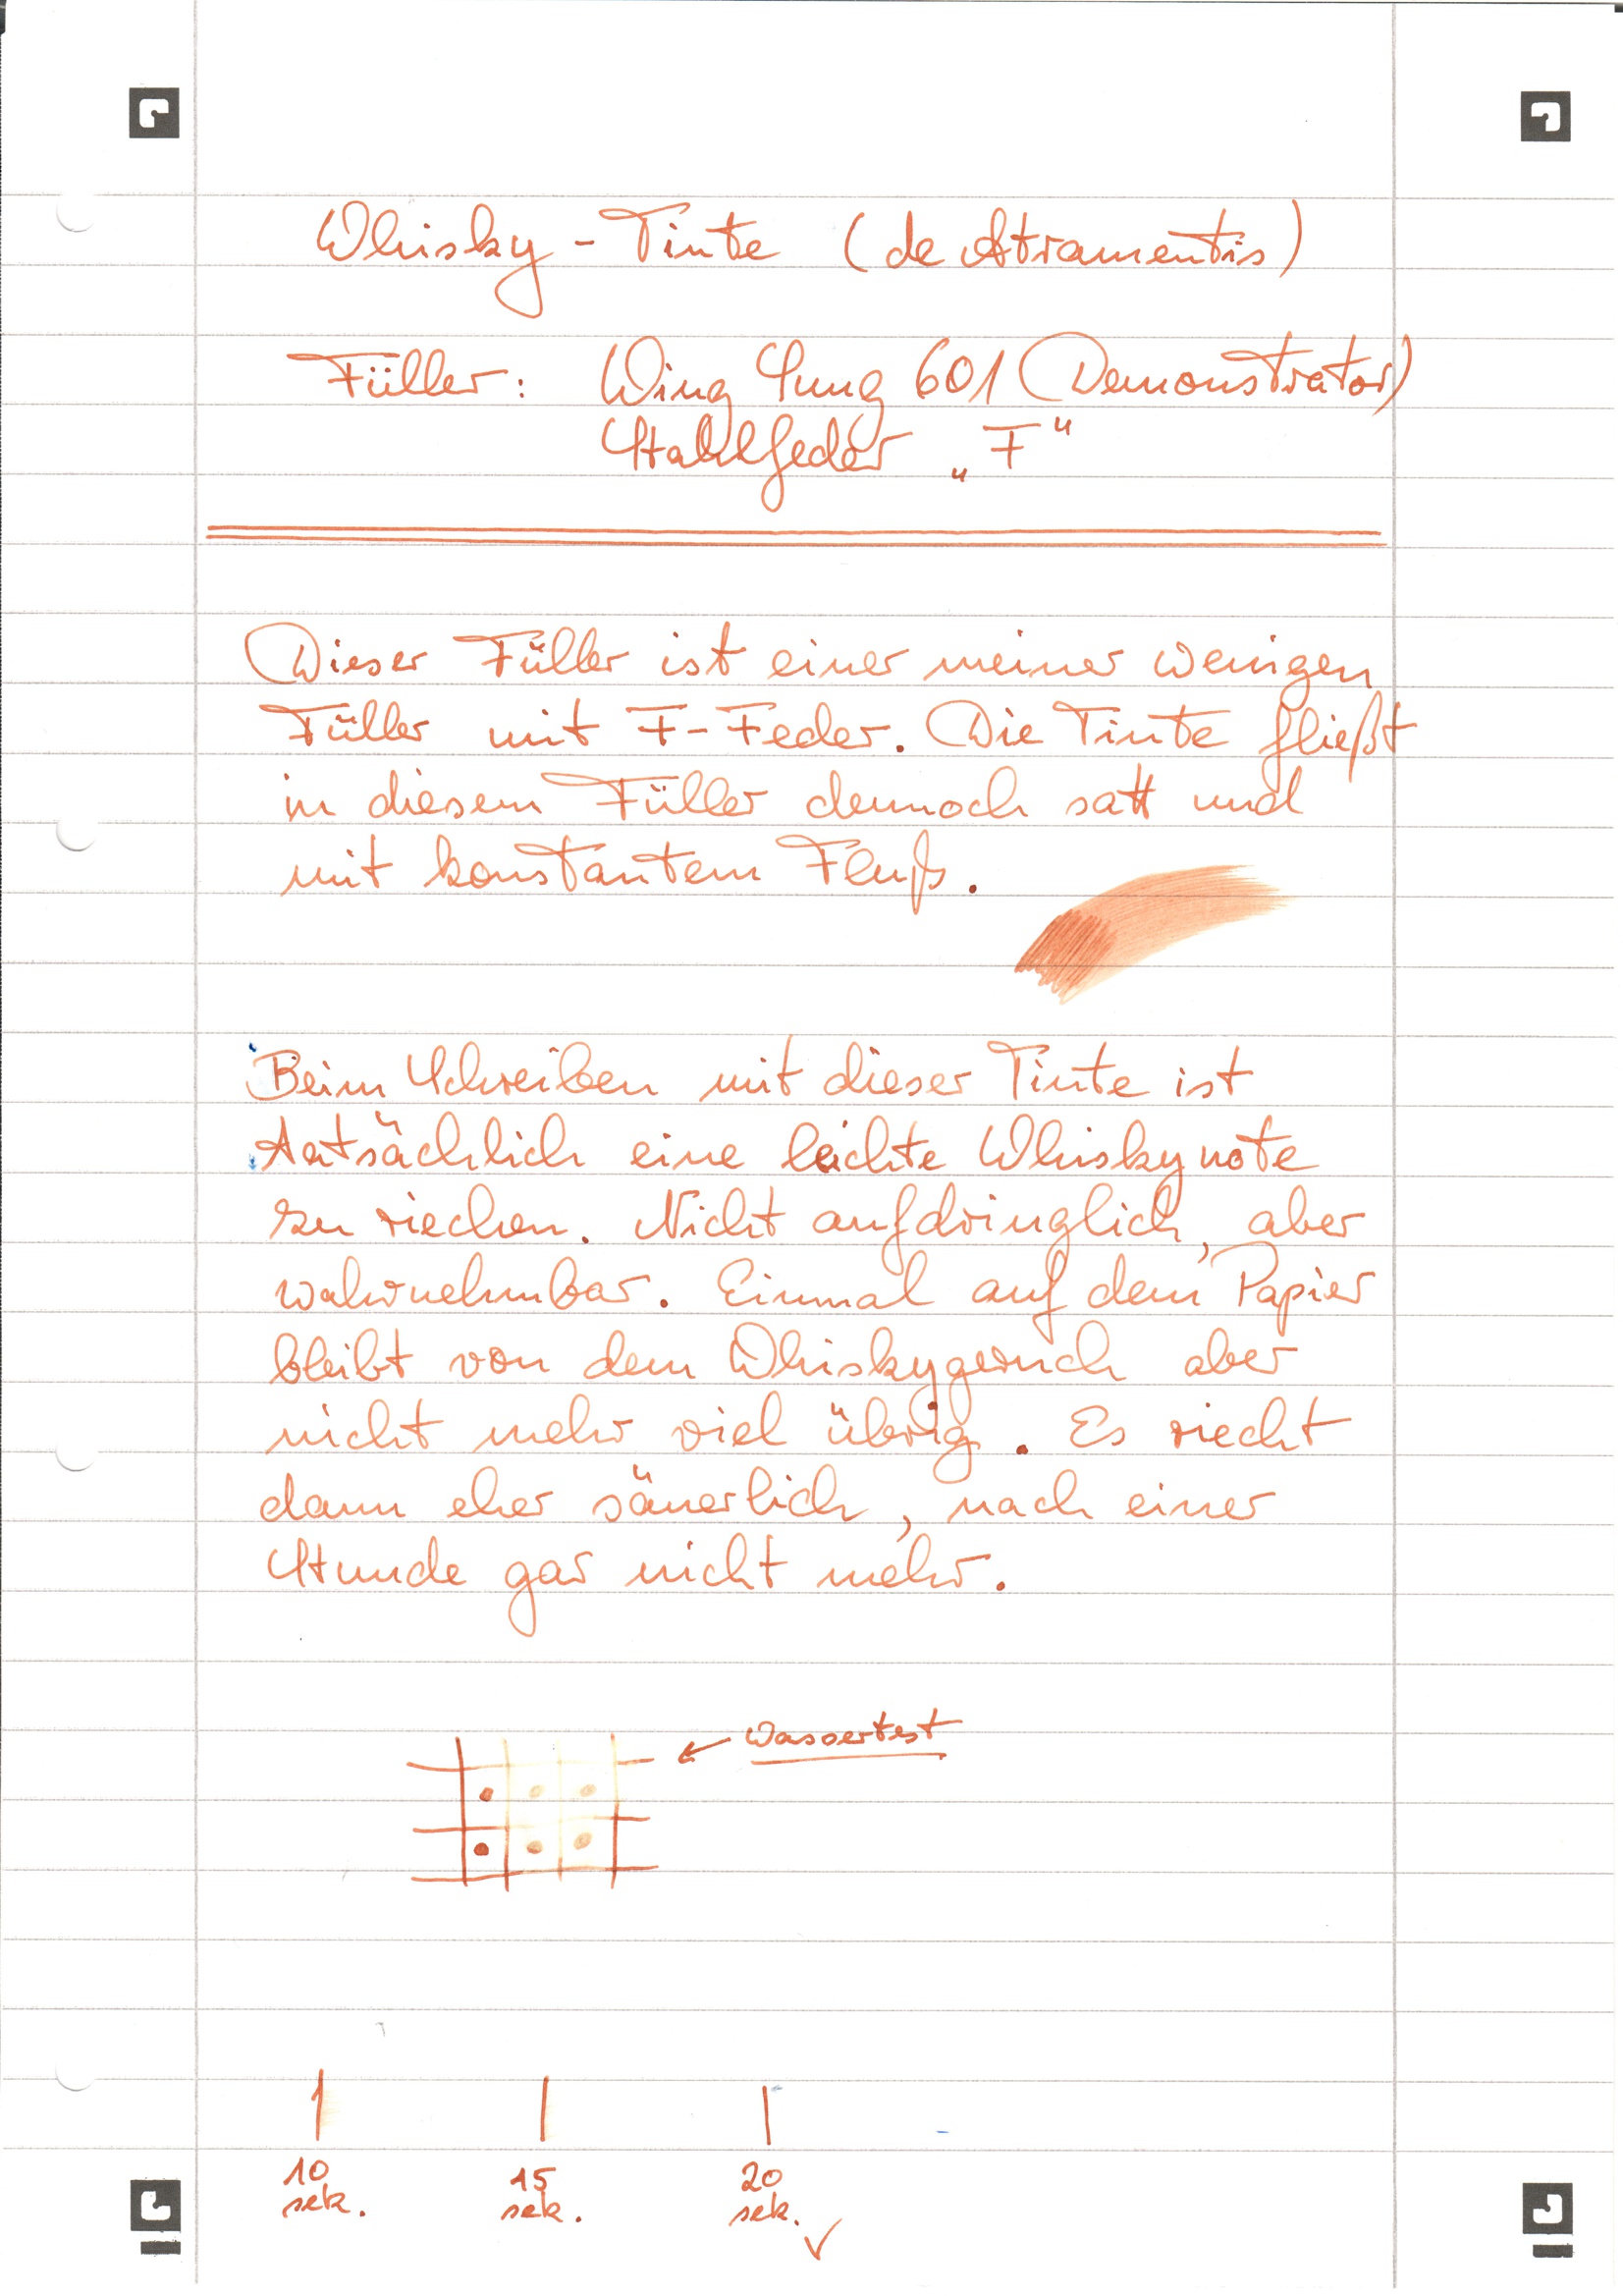 Whisky-Tinte (de Atramentis)
Füller: Wing Sung 601 (Demonstrator)
Stahlfeder „F"
Dieser Füller ist einer meiner wenigen
Füller mit F-Feder. Die Tinte fließt
in diesem Füller dennoch satt und
mit konstantem Fluß.
Beim Schreiben mit dieser Tinte ist
tatsächlich eine leichte Whiskynote
zu riechen. Nicht aufdringlich, aber
wahrnehmbar. Einmal auf dem Papier
bleibt von dem Whiskygeruch aber
nicht mehr viel übrig. Es riecht
dann eher säuerlich, nach einer
Stunde gar nicht mehr.
← Wassertest
10 15 20
sek. sek. sek. ✓